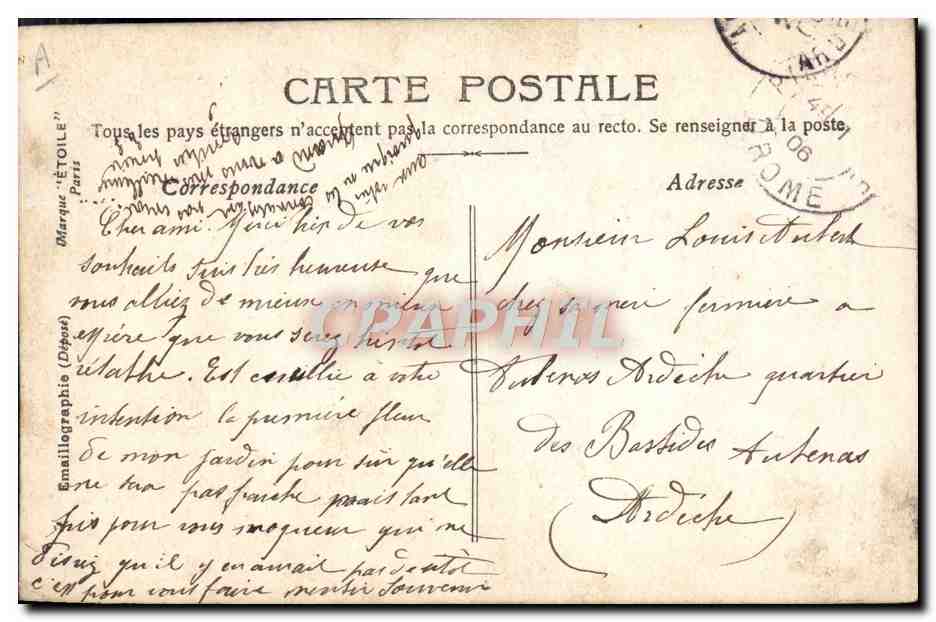 A
CARTE POSTALE
Tous les pays étrangers n'acceptent pas la correspondance au recto. Se renseigner à la poste
Correspondance
Adresse
Marque "ÉTOILE" Paris
Emaillographie (Déposé)
Cher ami. Merci bip de vos
souhaits suis très heureuse que
vous alliez de mieux en mieux
espère que vous serez bientot
rétablie. Est cueillie à votre
intention la première fleur
de mon jardin pour sûr qu'elle
ne sera pas fraiche mais tant
pis pour vous moqueur qui me
disiez qu'il y en aurait pas de utôt
c'est pour vous faire mentir Souvenir
Monsieur Louis Aubert
chez sa mère fermière a
Aubenas Ardèche quartier
des Bastides Aubenas
(Ardèche)
06
DROME
CPAPHIL